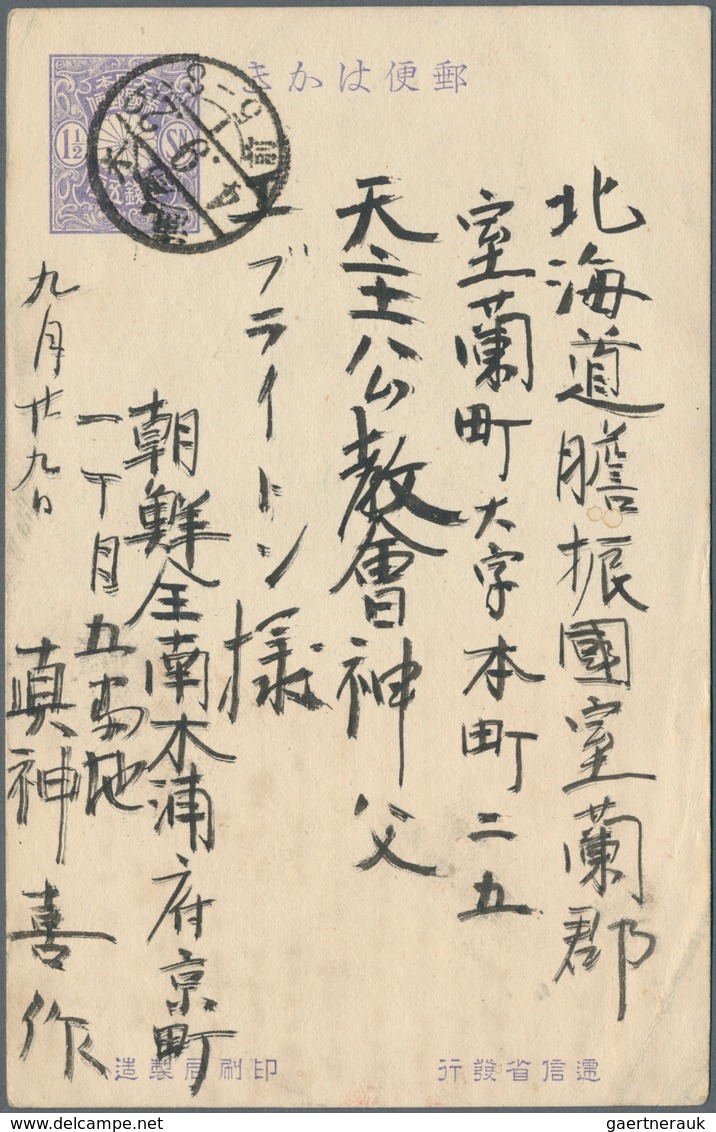 郵便はかき
北海道膽振國室蘭郡
室蘭町大字本町二五
天主公教會神父
エブライトン様
朝鮮全南木浦府京町
一丁目五番地
真神喜作
九月廿九日
1½
SN
4.9.29
前
遞信省發行
印刷局製造
gaertnerauk